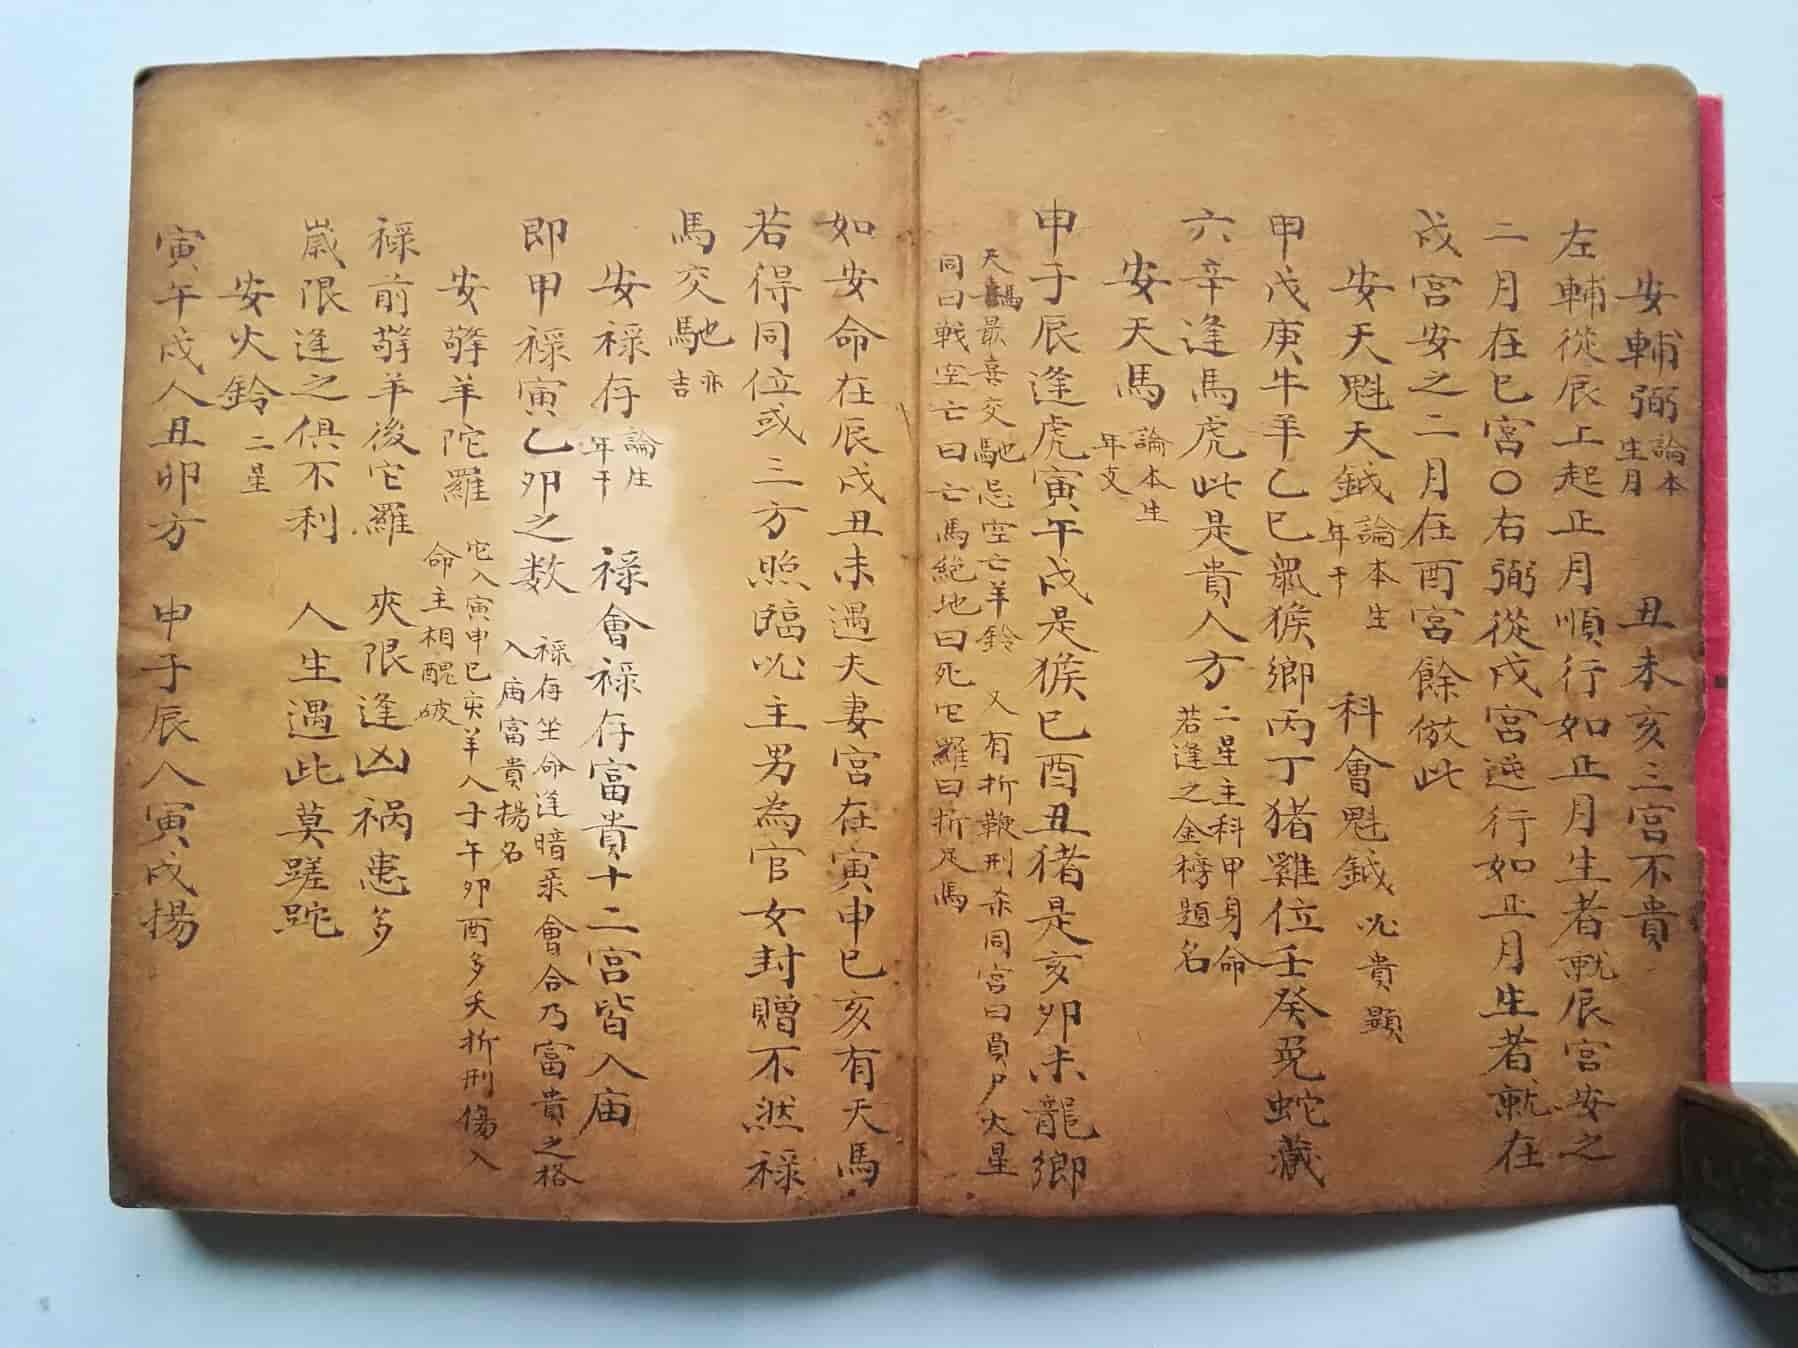 安輔弼 論本生月 丑未亥三宮不貴
左輔從辰上起正月順行如正月生者就辰宮安之
二月在巳宮〇右弼從戌宮逆行如正月生者就在
戌宮安之二月在酉宮餘倣此
安天魁天鉞 論本生年干 科會魁鉞必貴顯
甲戊庚牛羊乙巳鼠猴鄉丙丁猪雞位壬癸兎蛇藏
六辛逢馬虎此是貴人方 二星主科甲身命若逢之金榜題名
安天馬 論本生年支
申子辰逢虎寅午戌是猴巳酉丑猪是亥卯未龍鄉
天馬最喜交馳忌空亡羊鈴 又有折鞭刑杀同宮曰負尸火星
同曰戰空亡曰亡馬絶地曰死它羅曰折足馬
如安命在辰戌丑未遇夫妻宮在寅申巳亥有天馬
若得同位或三方照臨必主男為官女封贈不然祿
馬交馳 亦吉
安祿存 論生年干 祿會祿存富貴十二宮皆入庙
即甲祿寅乙卯之数 祿存坐命逢暗彔會合乃富貴之格
入庙富貴揚名
安擎羊陀羅 它入寅申巳亥羊入子午卯酉多夭折刑傷入
命主相醜破
祿前擎羊後它羅 夾限逢凶祸患多
嵗限逢之俱不利 人生遇此莫蹉跎
安火鈴 二星
寅午戌人丑卯方 申子辰人寅戌揚